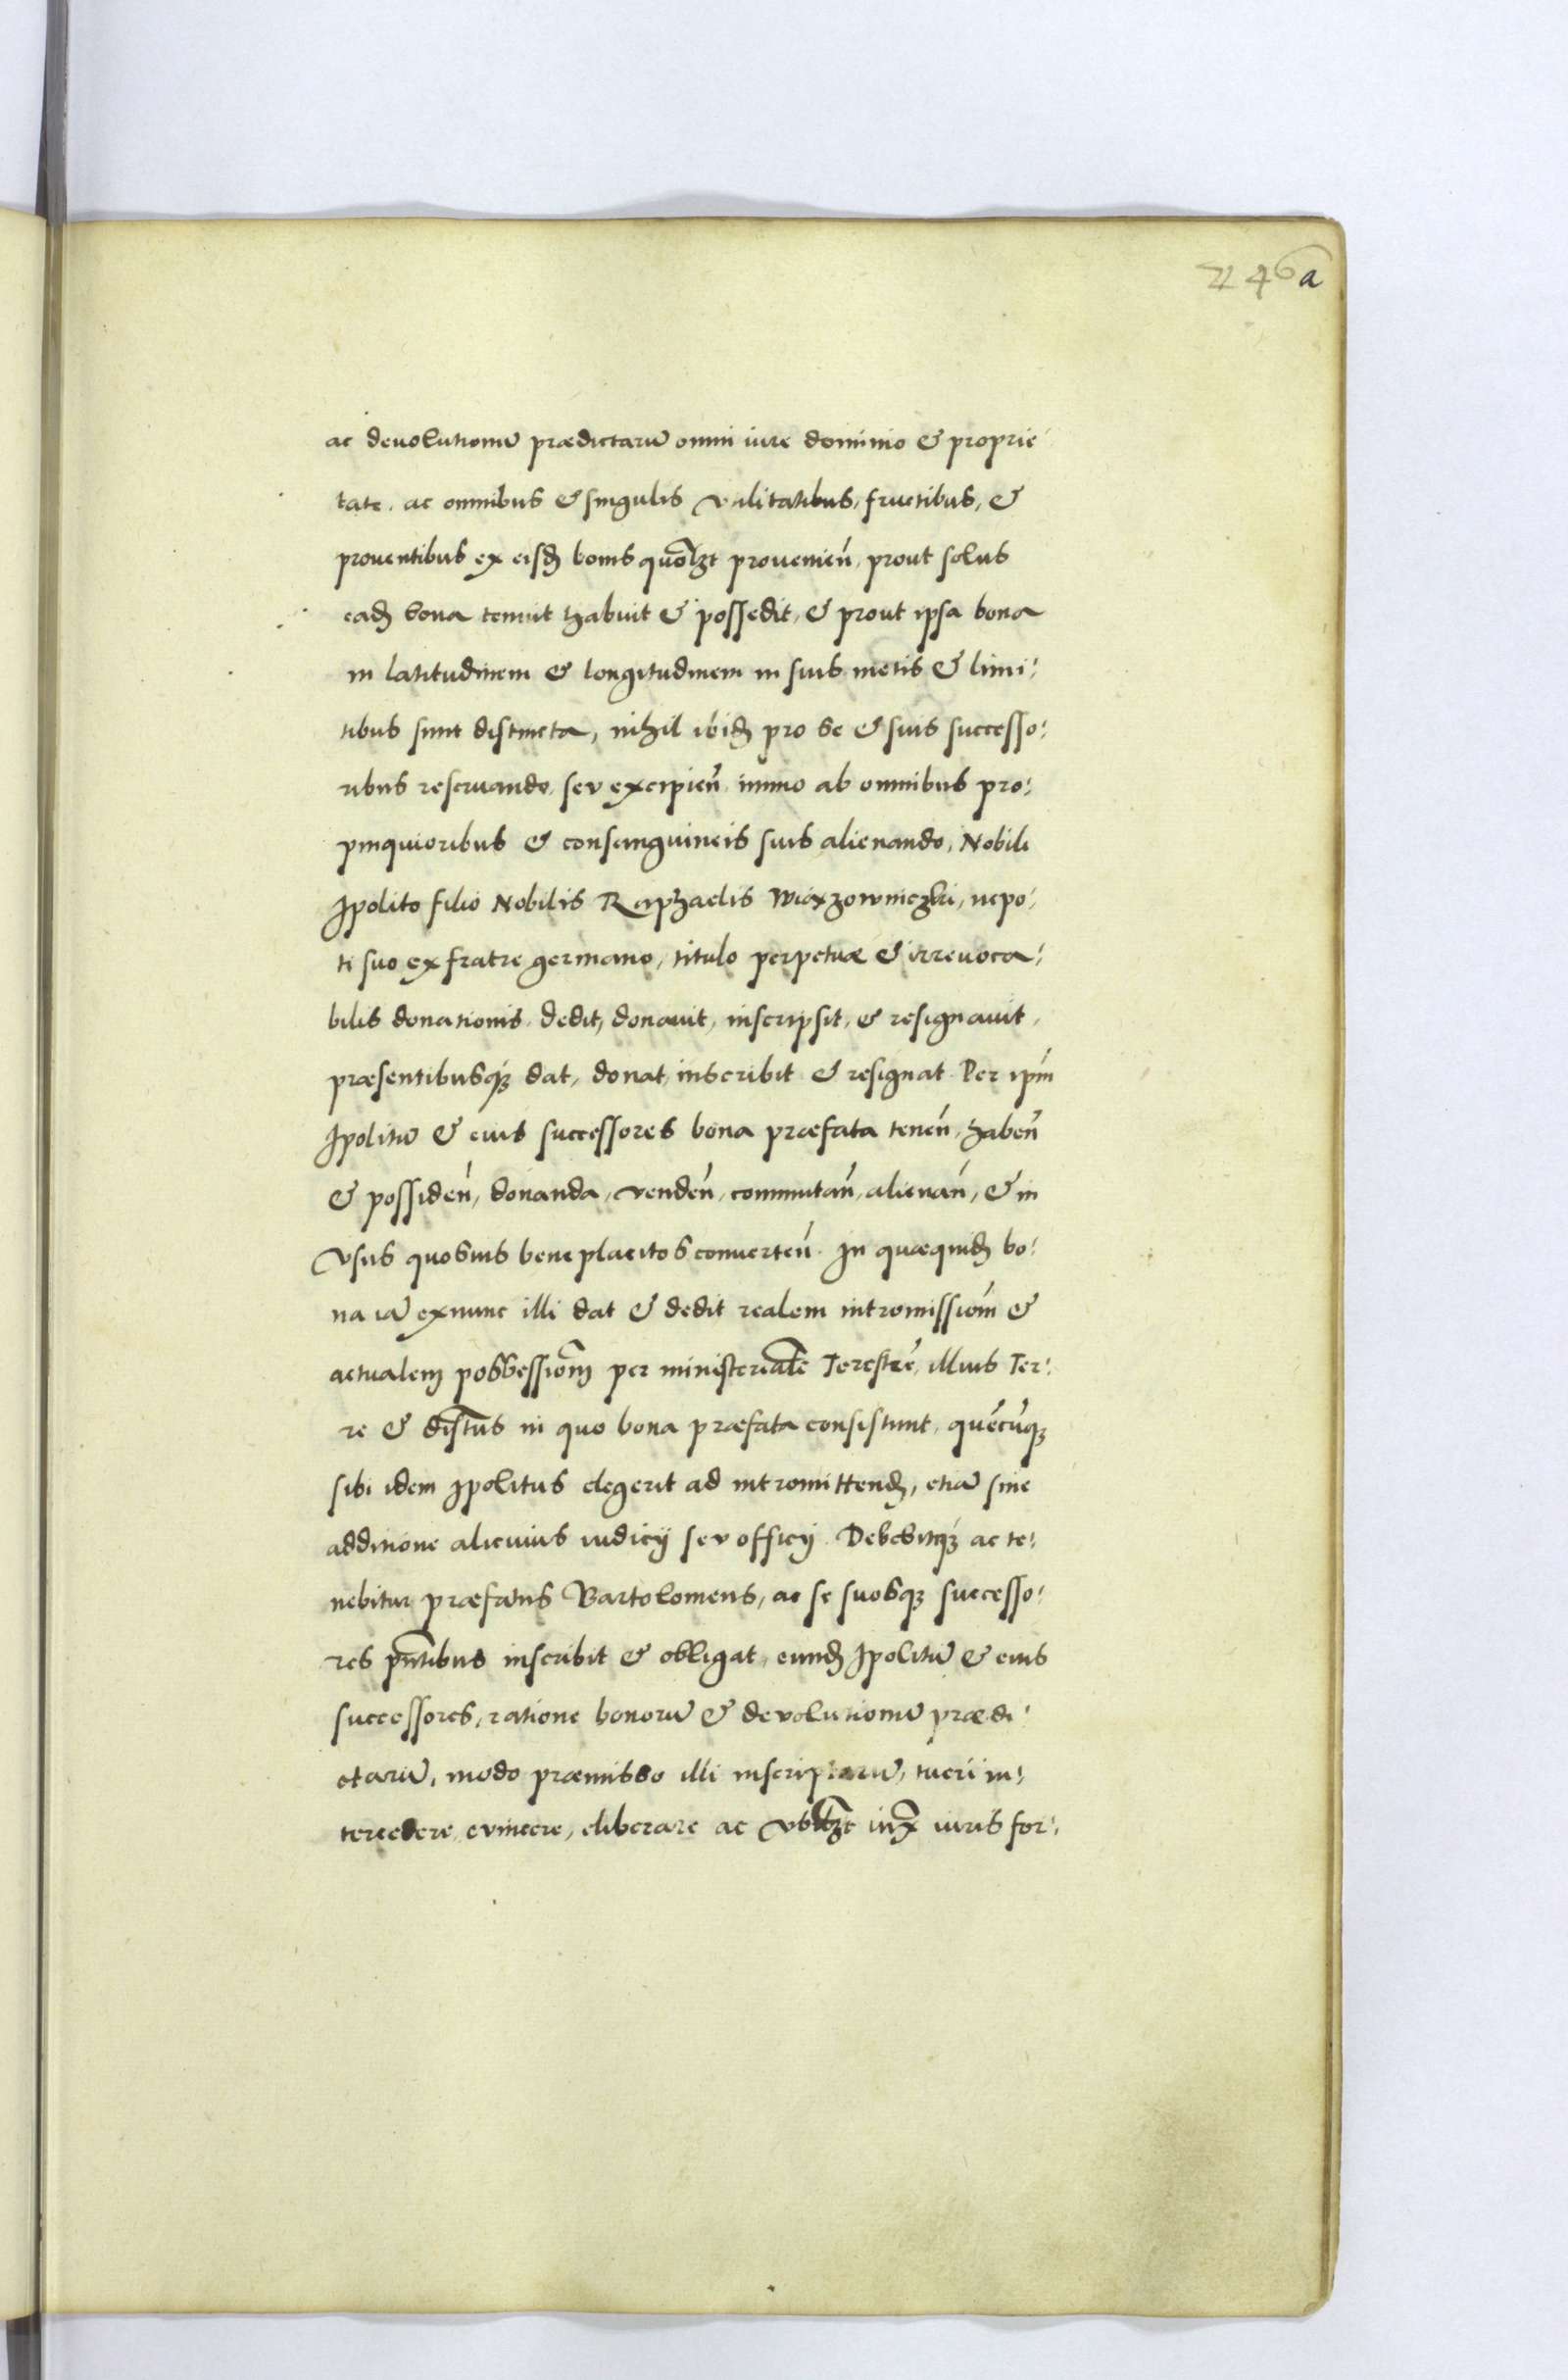 246a
ac deuolutionũ prædictarũ omni iure dominio & proprie
tate. ac omnibus & singulis vtilitatibus, fructibus, &
prouentibus ex eisdꝫ bonis quolꝫt prouenień, prout solus
eadꝫ bona tenuit habuit & possedit, & prout ipsa bona
in latitudinem & longitudinem in suis metis & limi:
tibus sunt distincta, nihil ibidꝫ pro se & suis successo:
ribus reseruando, sev excipień immo ab omnibus pro:
pinquioribus & consanguineis suis alienando, Nobili
Ipolito filio Nobilis Raphaelis Wiaxzowniczki, nepo,
ti suo ex fratre germano, titulo perpetuæ & irreuoca:
bilis donationis dedit, donauit, inscripsit, & resignauit,
præsentibusqꝫ dat, donat, inscribit & resignat Per ipḿ
Ipolitũ & eius successores bona præfata teneń, habeń
& possideń, donanda, vendeń, commutań, alienań, & in
vsus quosuis beneplacitos conuerteń. In quæquidꝫ bo:
na iã exnunc illi dat & dedit realem intromissioḿ &
actualem possessiom̃ per ministerialẽ Terestrẽ, illius Ter:
re & distus̃ in quo bona præfata consistunt, quẽcũqꝫ
sibi idem Ipolitus elegerit ad intromittendꝫ, etiã sine
additione alicuius iudicij sev officij. Debebitqꝫ ac te:
nebitur præfatus Bartolomeus, ac se suosqꝫ successo:
res pñtibus inscribit & obligat, eundꝫ Ipolitũ & eius
successores, ratione bonorũ & devolutionũ prædi:
ctarũ, modo præmisso illi inscriptarũ, tueri in:
tercedere evincere, eliberare ac vbilꝫt iux̃ iuris for: